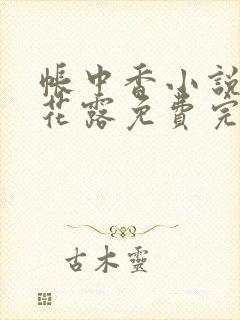 帳中香小說
花露免費完
古木靈